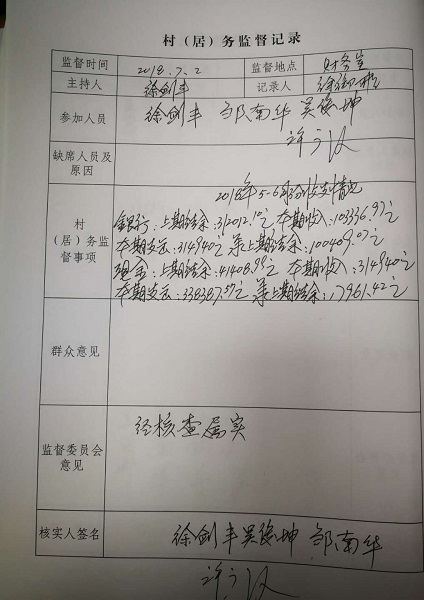 村（居）务监督记录
监督时间 2018.7.2 监督地点 财务室
主持人 徐剑丰 记录人
参加人员 徐剑丰 邹南华 吴俊坤
缺席人员及原因
2018年5-6月份收支情况
村（居）务监督事项
银行：上期结余：312012.10元 本期收入：103336.97元
本期支出：314940元 累上期结余：100409.07元
现金：上期结余：41408.99元 本期收入：314940元
本期支出：338387.57元 累上期结余：17961.42元
群众意见
监督委员会意见 经核查属实
核实人签名 徐剑丰 吴俊坤 邹南华